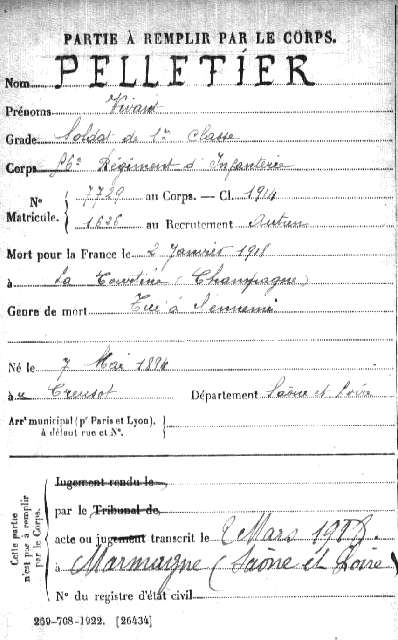 PARTIE À REMPLIR PAR LE CORPS.
Nom PELLETIER
Prénoms Vivant
Grade Soldat de 1re Classe
Corps 56e Régiment d'Infanterie
N° Matricule. { 7729 au Corps. — Cl. 1914
1626 au Recrutement Autun
Mort pour la France le 2 Janvier 1918
à La (Champagne)
Genre de mort Tué à l'ennemi
Né le 7 Mai 1894
à u Creusot Département Saône et Loire
Arrt municipal (pr Paris et Lyon),
à défaut rue et N°.
Cette partie n'est pas à remplir par le Corps.
Jugement rendu le
par le Tribunal de
acte ou jugement transcrit le 2 Mars 1918.
à Marmagne (Saône et Loire)
N° du registre d'état civil
269-708-1922. [26434]